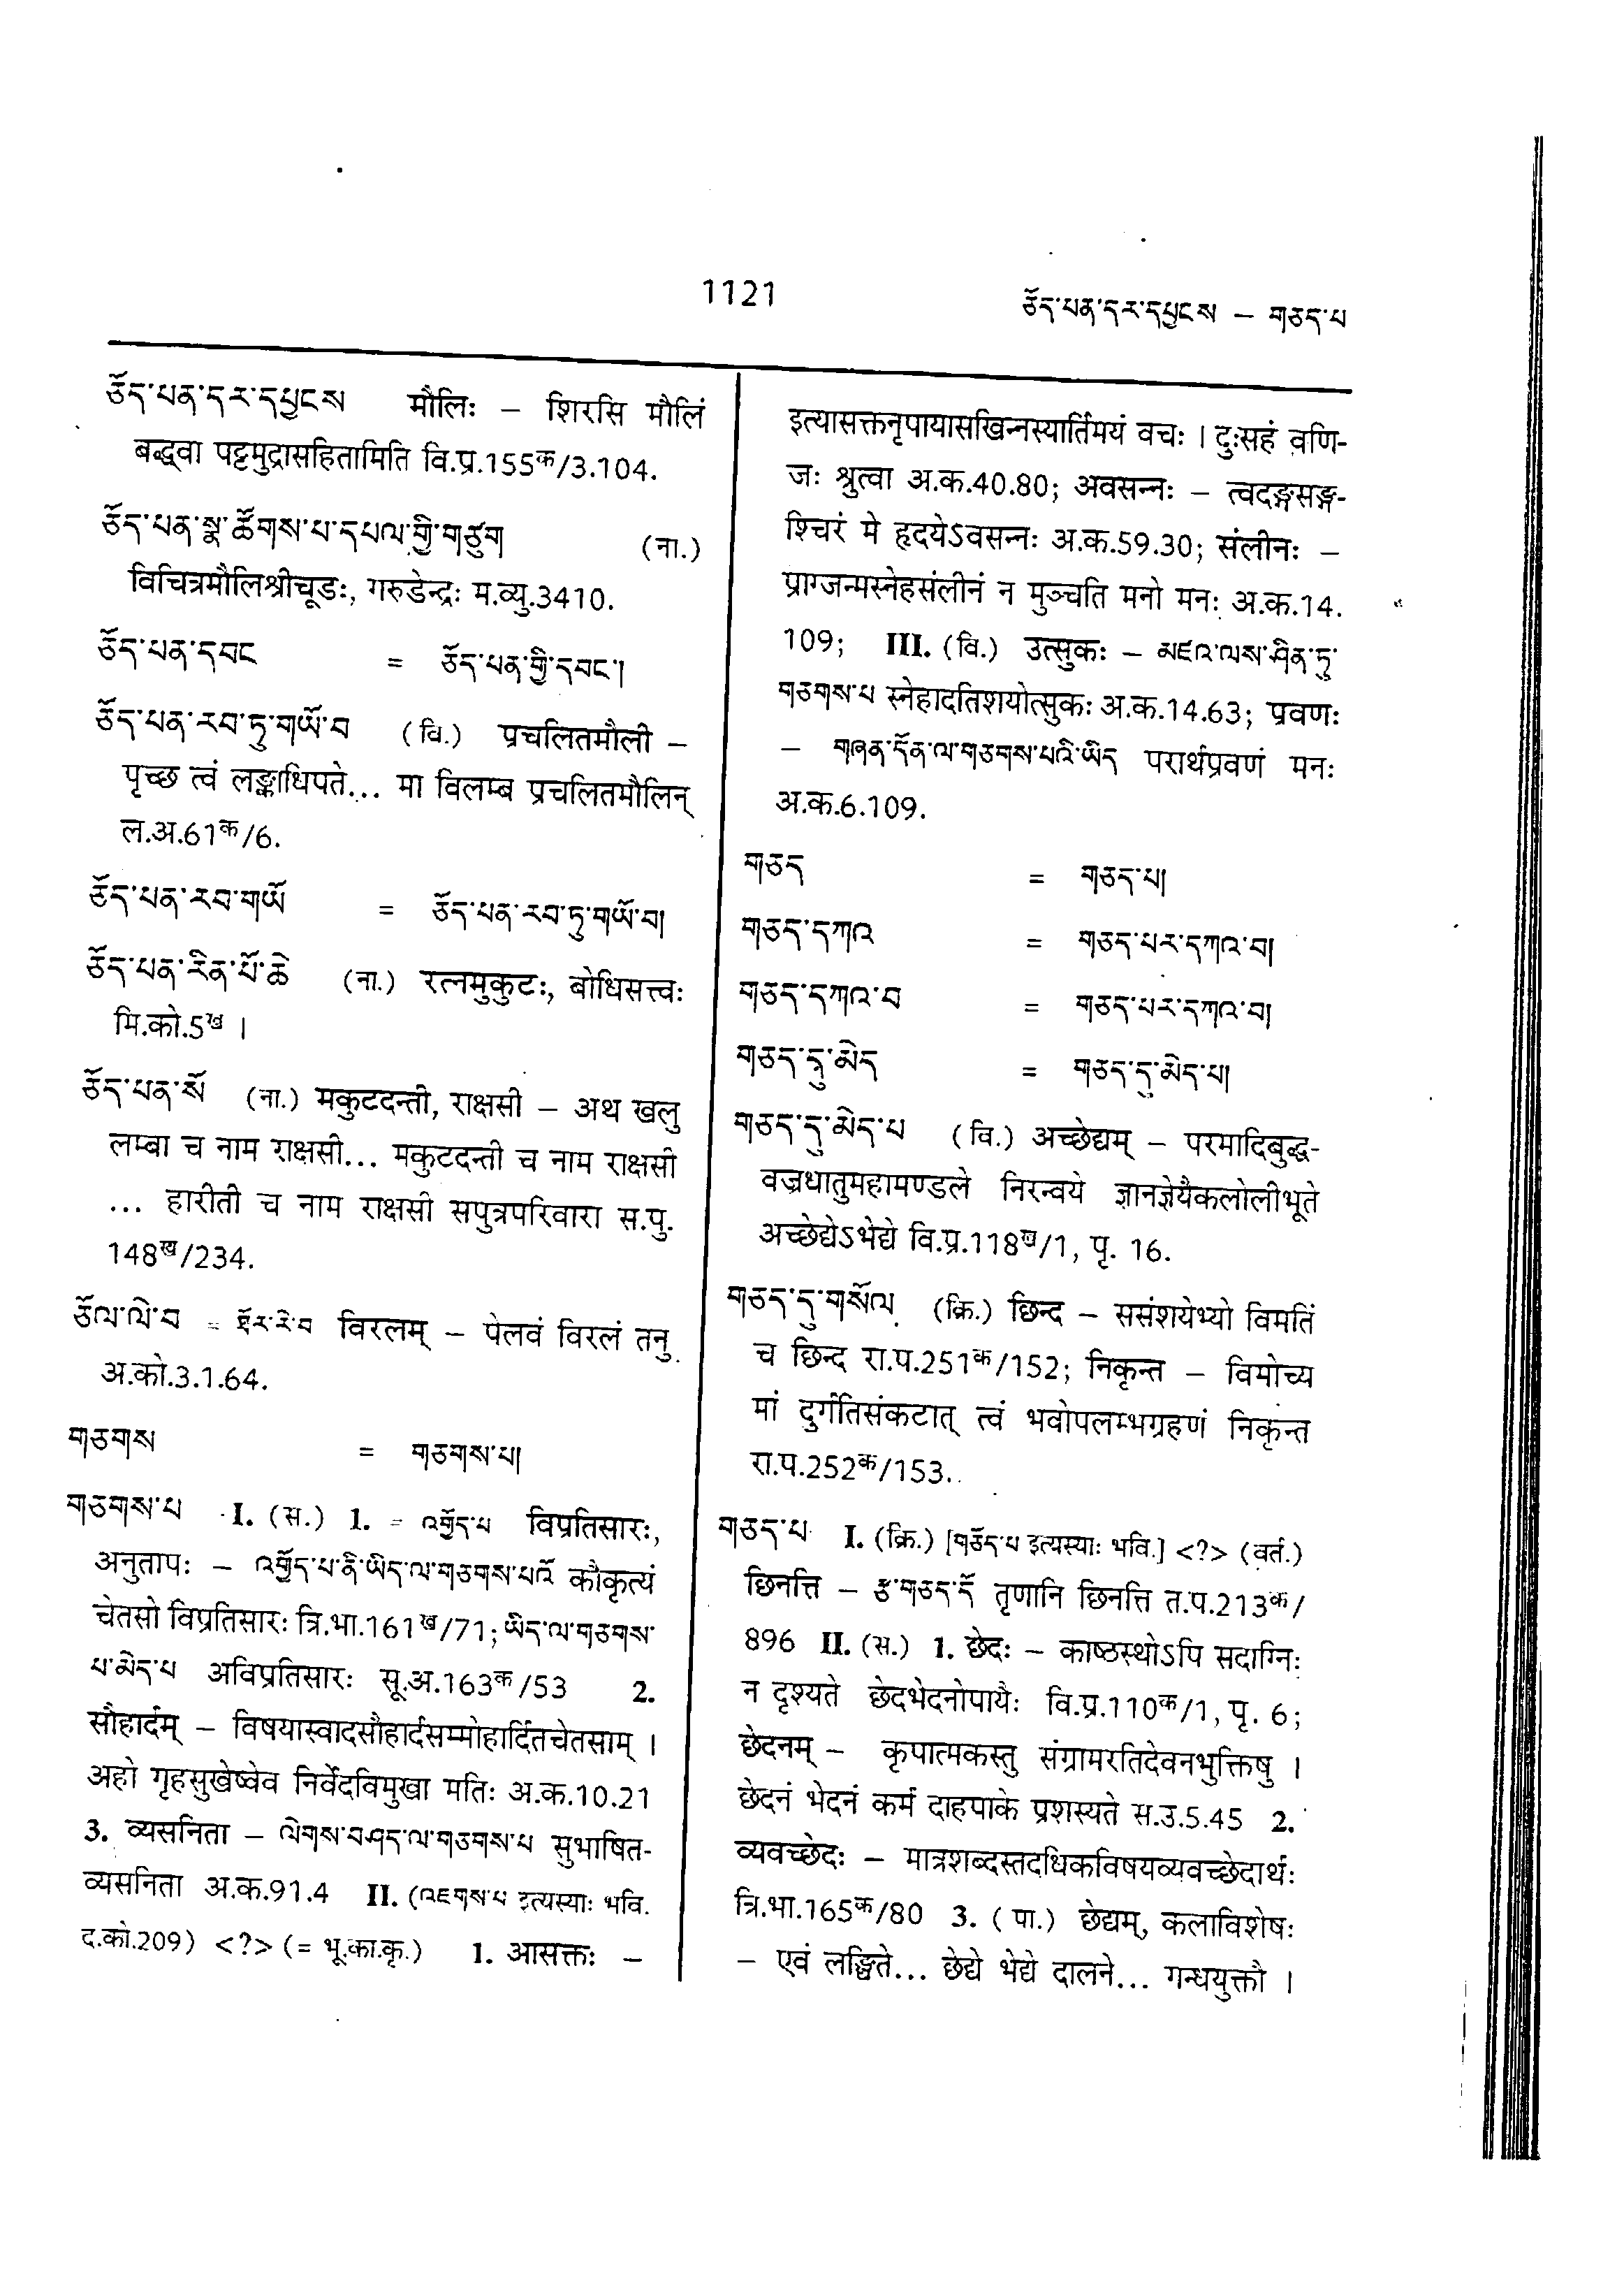 1121
ཅོད་པན་དར་དཔྱངས – གཅད་པ
ཅོད་པན་དར་དཔྱངས मौलिः – शिरसि मौलिं
बद्ध्वा पट्टमुद्रासहितामिति वि.प्र.155क/3.104.
ཅོད་པན་སྣ་ཚོགས་པ་དཔལ་གྱི་གཙུག (ना.)
विचित्रमौलिश्रीचूडः, गरुडेन्द्रः म.व्यु.3410.
ཅོད་པན་དབང = ཅོད་པན་གྱི་དབང་།
ཅོད་པན་རབ་ཏུ་གཡོ་བ (वि.) प्रचलितमौली –
पृच्छ त्वं लङ्काधिपते... मा विलम्ब प्रचलितमौलिन्
ल.अ.61क/6.
ཅོད་པན་རབ་གཡོ = ཅོད་པན་རབ་ཏུ་གཡོ་བ།
ཅོད་པན་རིན་པོ་ཆེ (ना.) रत्नमुकुटः, बोधिसत्त्वः
मि.को.5ख ।
ཅོད་པན་སོ (ना.) मकुटदन्ती, राक्षसी – अथ खलु
लम्बा च नाम राक्षसी... मकुटदन्ती च नाम राक्षसी
... हारीती च नाम राक्षसी सपुत्रपरिवारा स.पु.
148ख/234.
ཅོལ་ལེ་བ = ཇོར་རེ་བ विरलम् – पेलवं विरलं तनु
अ.को.3.1.64.
གཅགས = གཅགས་པ།
གཅགས་པ I. (स.) 1. = འགྱོད་པ विप्रतिसारः,
अनुतापः – འགྱོད་པ་ནི་ཡིད་ལ་གཅགས་པའོ कौकृत्यं
चेतसो विप्रतिसारः त्रि.भा.161ख/71; ཡིད་ལ་གཅགས་
པ་མེད་པ अविप्रतिसारः सू.अ.163क/53 2.
सौहार्दम् – विषयास्वादसौहार्दसम्मोहार्दितचेतसाम् ।
अहो गृहसुखेष्वेव निर्वेदविमुखा मतिः अ.क.10.21
3. व्यसनिता – ལེགས་བཤད་ལ་གཅགས་པ सुभाषित-
व्यसनिता अ.क.91.4 II. (འཇགས་པ इत्यस्याः भवि.
द.को.209) <?> (= भू.का.कृ.) 1. आसक्तः –
इत्यासक्तनृपायासखिन्नस्यार्तिमयं वचः । दुःसहं वणि-
जः श्रुत्वा अ.क.40.80; अवसन्नः – त्वदङ्गसङ्ग-
श्चिरं मे हृदयेऽवसन्नः अ.क.59.30; संलीनः –
प्राग्जन्मस्नेहसंलीनं न मुञ्चति मनो मनः अ.क.14.
109; III. (वि.) उत्सुकः – མཛའ་ལས་ཤིན་ཏུ་
གཅགས་པ स्नेहादतिशयोत्सुकः अ.क.14.63; प्रवणः
– གཞན་དོན་ལ་གཅགས་པའི་ཡིད परार्थप्रवणं मनः
अ.क.6.109.
གཅད = གཅད་པ།
གཅད་དཀའ = གཅད་པར་དཀའ་བ།
གཅད་དཀའ་བ = གཅད་པར་དཀའ་བ།
གཅད་དུ་མེད = གཅད་དུ་མེད་པ།
གཅད་དུ་མེད་པ (वि.) अच्छेद्यम् – परमादिबुद्ध-
वज्रधातुमहामण्डले निरन्वये ज्ञानज्ञेयैकलोलीभूते
अच्छेद्येऽभेद्ये वि.प्र.118ख/1, पृ. 16.
གཅད་དུ་གསོལ (क्रि.) छिन्द – ससंशयेभ्यो विमतिं
च छिन्द रा.प.251क/152; निकृन्त – विमोच्य
मां दुर्गतिसंकटात् त्वं भवोपलम्भग्रहणं निकृन्त
रा.प.252क/153.
གཅད་པ I. (क्रि.) [གཅོད་པ इत्यस्याः भवि.] <?> (वर्त.)
छिनत्ति – རྩ་གཅད་དོ तृणानि छिनत्ति त.प.213क/
896 II. (स.) 1. छेदः – काष्ठस्थोऽपि सदाग्निः
न दृश्यते छेदभेदनोपायैः वि.प्र.110क/1, पृ. 6;
छेदनम् – कृपात्मकस्तु संग्रामरतिदेवनभुक्तिषु ।
छेदनं भेदनं कर्म दाहपाके प्रशस्यते स.उ.5.45 2.
व्यवच्छेदः – मात्रशब्दस्तदधिकविषयव्यवच्छेदार्थः
त्रि.भा.165क/80 3. (पा.) छेद्यम्, कलाविशेषः
– एवं लङ्घिते... छेद्ये भेद्ये दालने... गन्धयुक्तौ ।